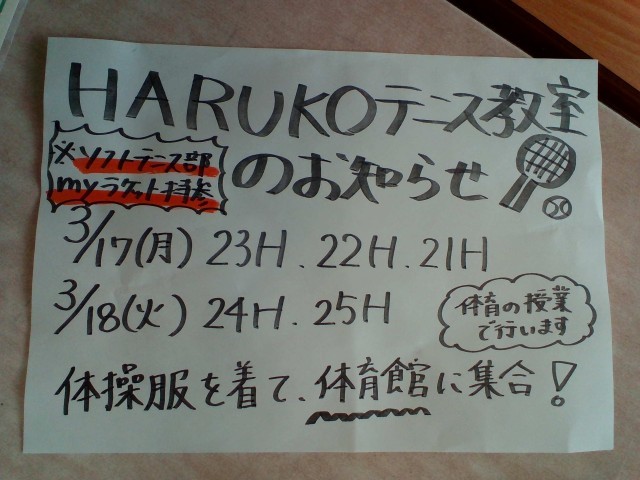 HARUKOテニス教室
のお知らせ
※ソフトテニス部
myラケット持参
3/17(月) 23H、22H、21H
3/18(火) 24H、25H
体育の授業
で行います
体操服を着て、体育館に集合!